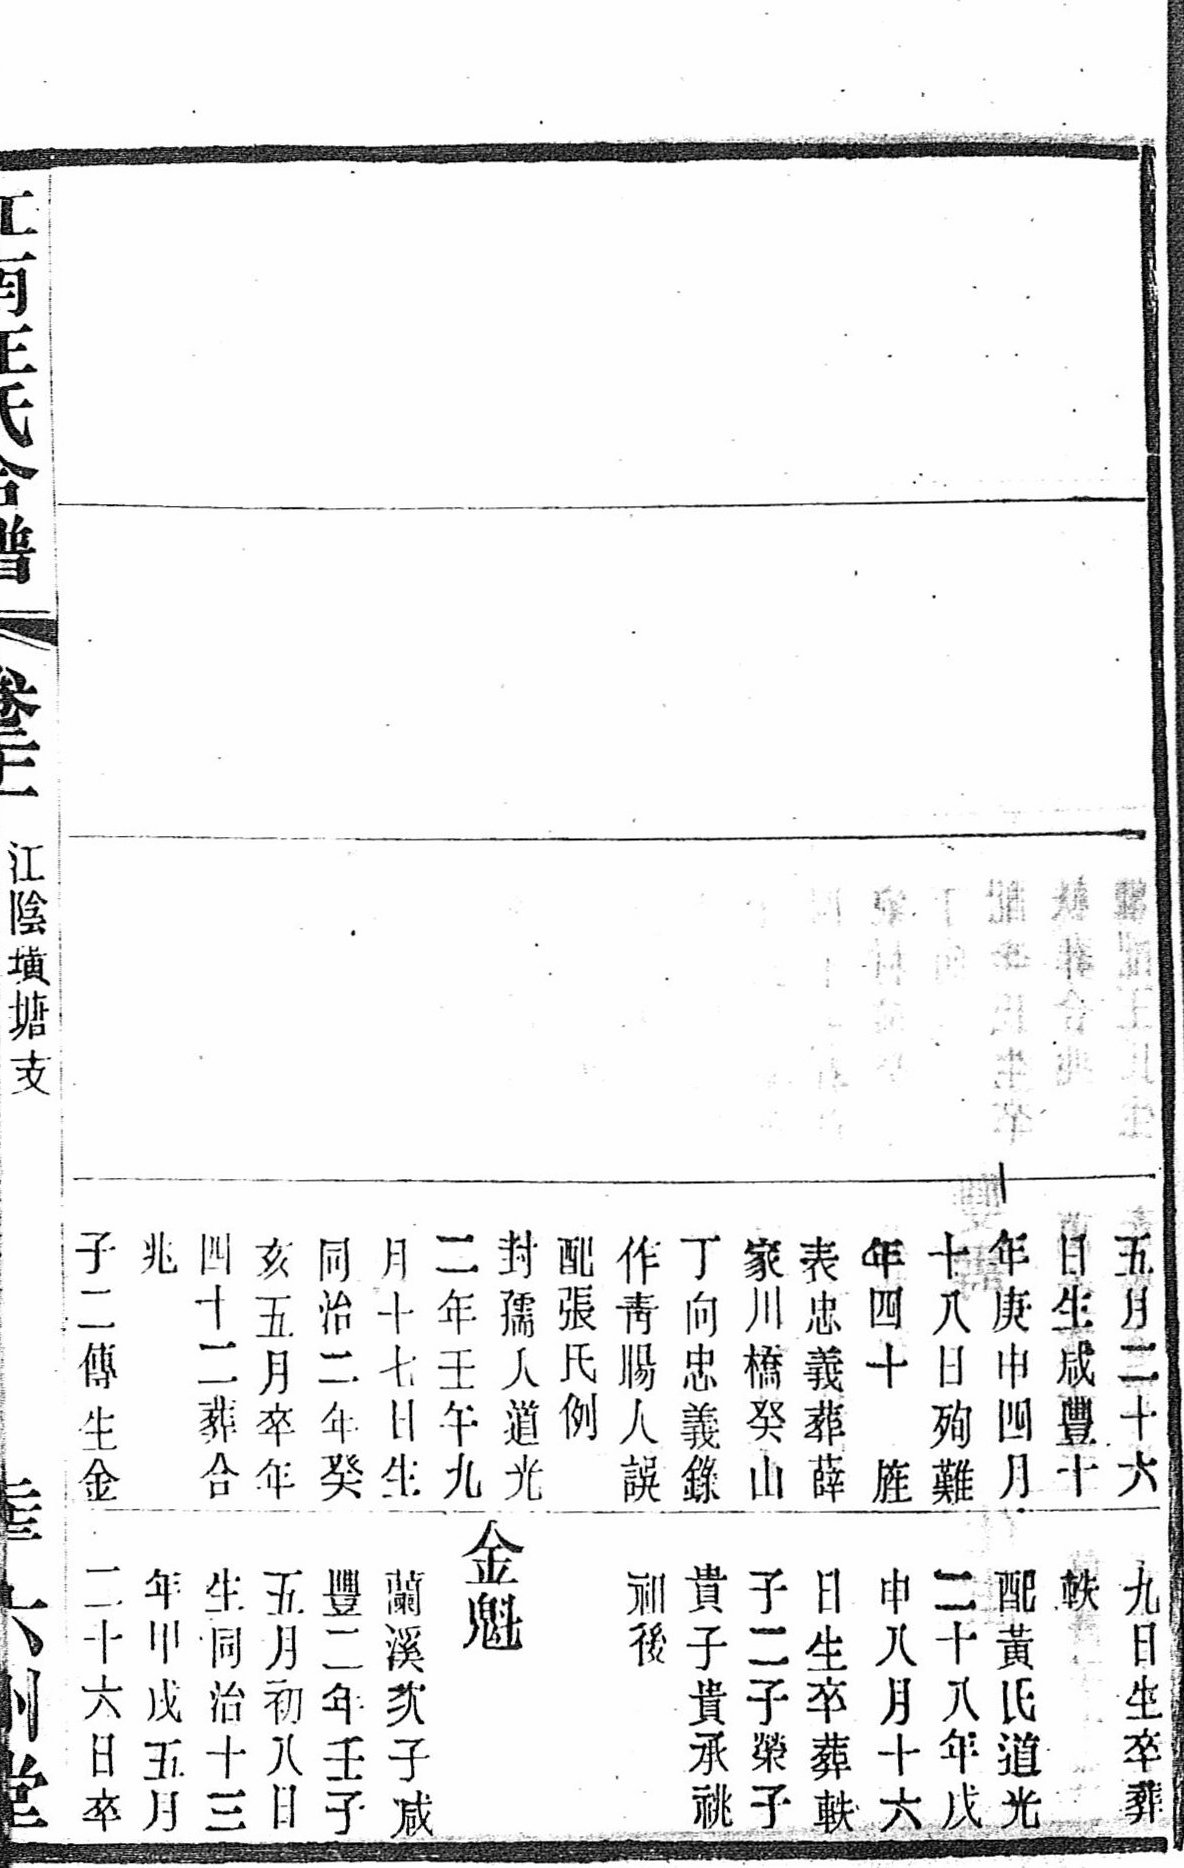 五月二十六
日生咸豐十
年庚申四月
十八日殉難
年四十　旌
表忠義葬薛
家川橋癸山
丁向忠義錄
作靑腸人誤
配張氏例
封孺人道光
二年壬午九
月十七日生
同治二年癸
亥五月卒年
四十二葬合
兆
子二傳生金
九日生卒葬
軼
配黃氏道光
二十八年戊
申八月十六
日生卒葬軼
子二子榮子
貴子貴承祧
祠後
金魁
蘭溪次子咸
豐二年壬子
五月初八日
生同治十三
年甲戌五月
二十六日卒
江南汪氏合譜
江陰墴塘支
六州堂